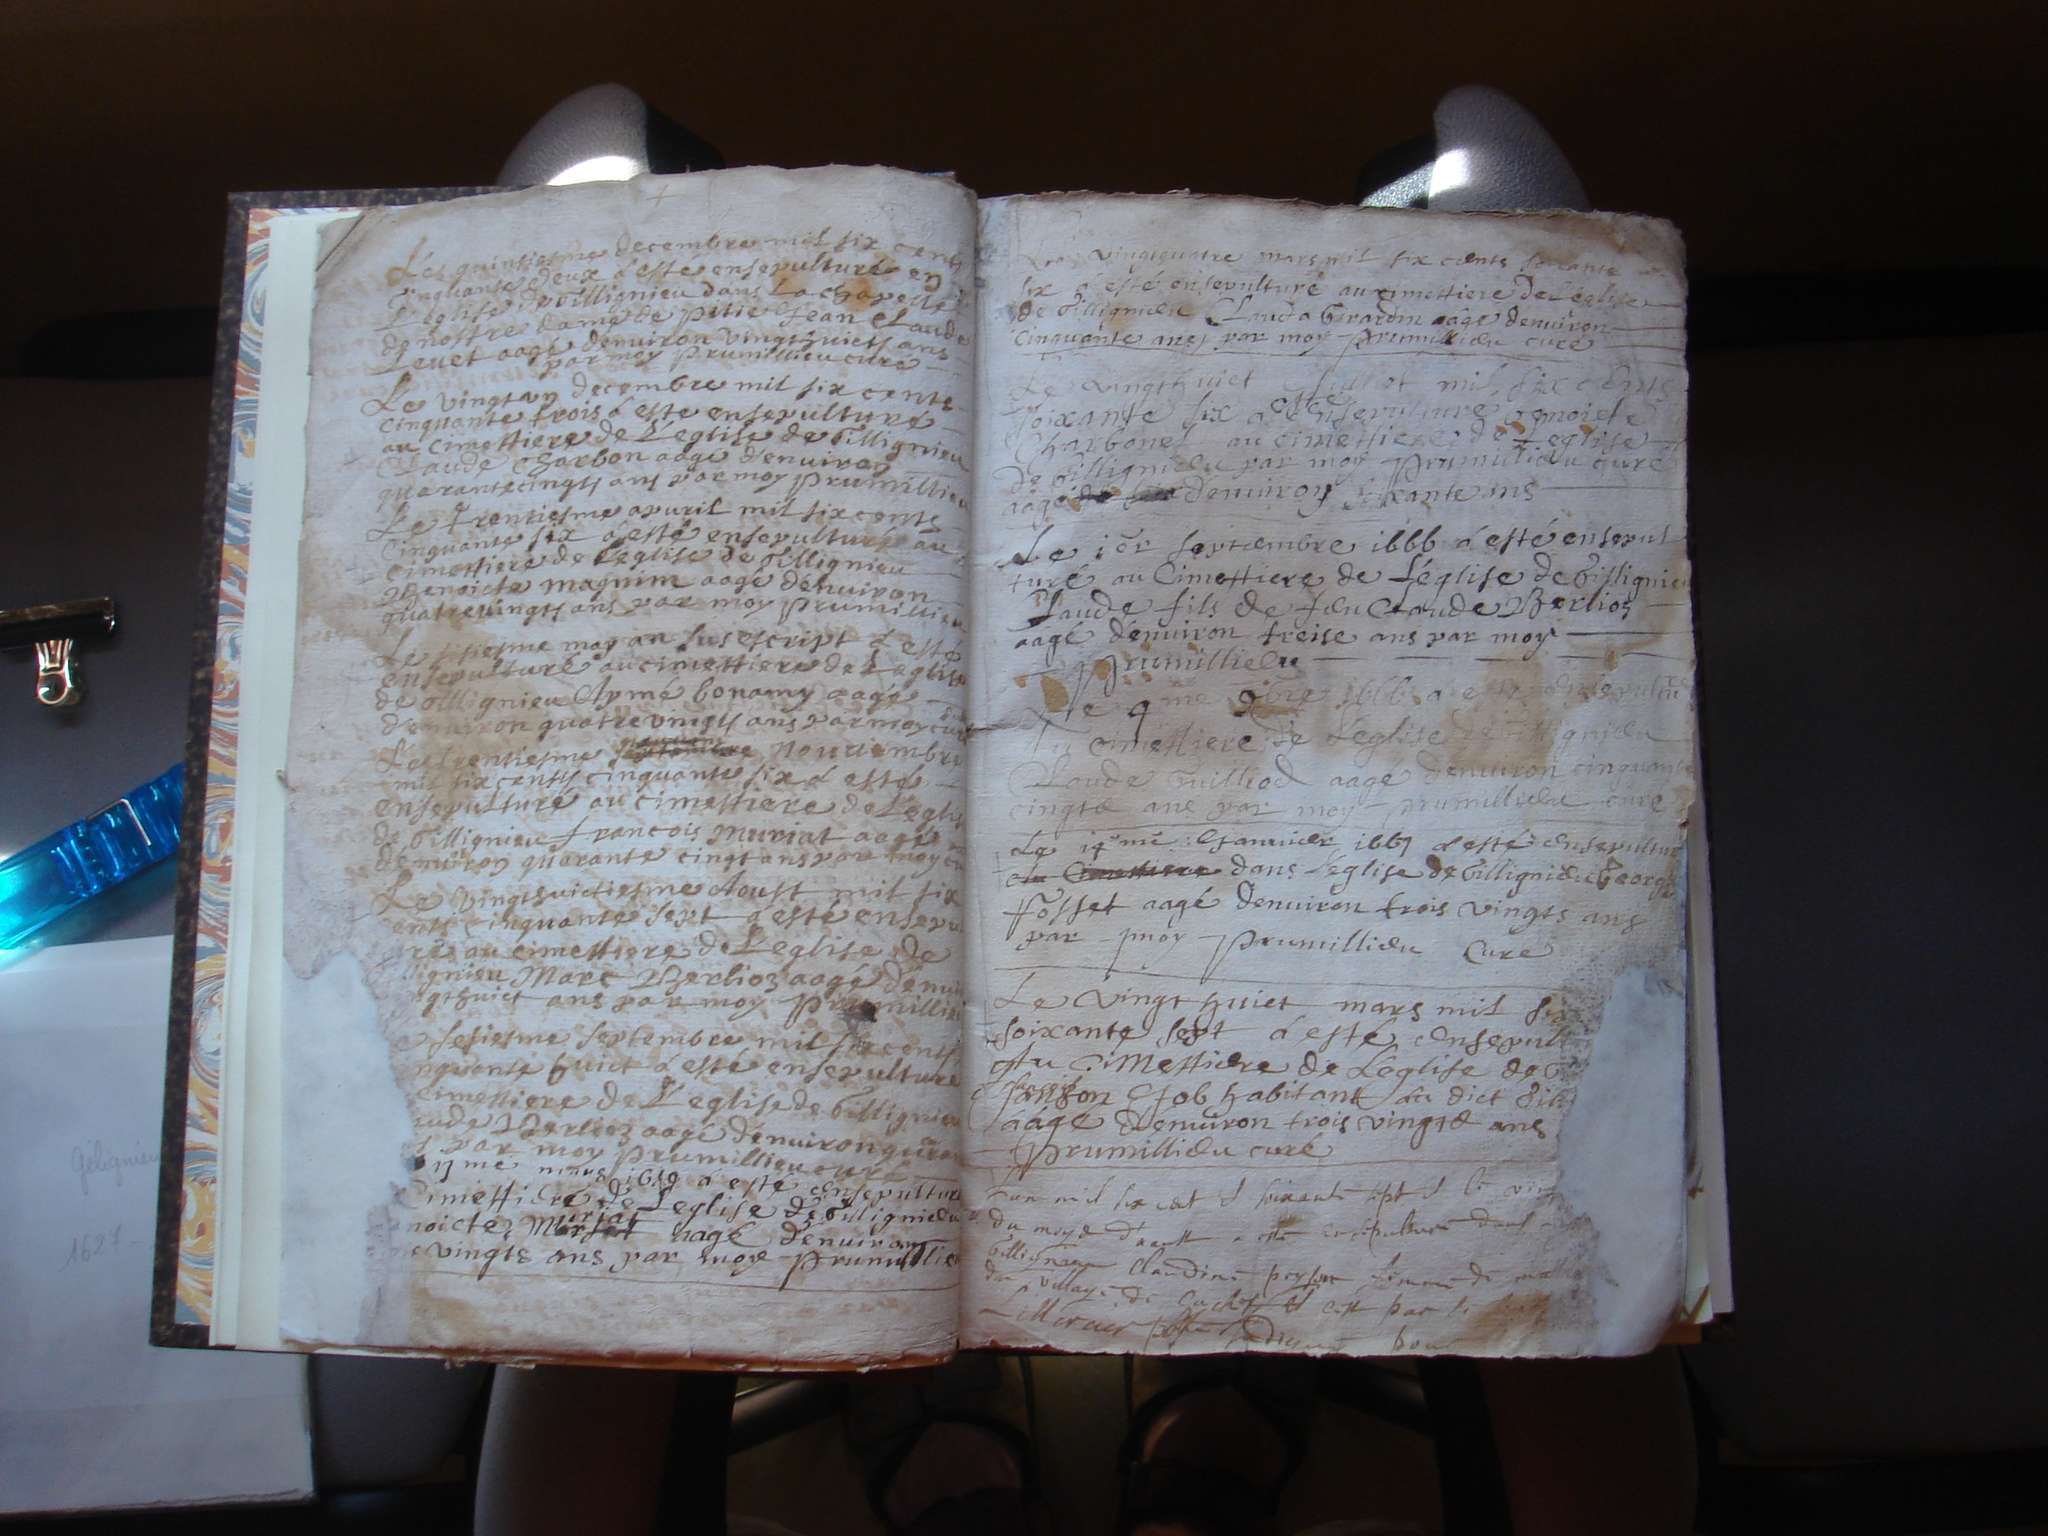 Les quinsiesme decembre mil six cents
cinquante deux á esté ensepulturé en
L'eglise de Gillignieu dans La chapelle
de nostre dame de pitie Jean Claude
Levet aagé denuiron vingthuict ans
par moy Prumillieu curé
Le vingt un decembre mil six cents
cinquante trois á esté ensepulturé
au Cimettiere de L'eglise de Gillignieu
Claude Charbon aagé denuiron
quarantecingts ans par moy Prumillieu
Le Trentiesme apuril mil six cents
Cinquante six á esté ensepulturé au
cimettiere de L'eglise de Gillignieu
Benoicte magnim aagé denuiron
quatrevingts ans par moy Prumillieu
Le may an susescript á esté
ensepulturé au cimettiere de L'eglise
de Gillignieu Aymé bonamy aagé
denuiron quatrevingts ans par moy curé
Les trentiesme nouuembre
mil six cents cinquante six á esté
ensepulturé au cimettiere de L'eglise
de Gillignieu francois muriat aagé
denuiron quarante cingt ans par moy
Le vingthuictiesme Aoust mil six
ents cinquante sept á esté ensepu
ré au cimettiere de L'eglise de
llignieu Marc Berlioz aagé denui
ngthuict ans par moy Prumillieu
sesiesme septembre mil six cents
nquante huict á esté ensepulturé
cimettiere de L'eglise de Gillignieu
aude Berlioz aagé denuiron quaran
par moy Prumillieu curé
me mars á esté ensepulturé
Cimettiere de L'eglise de Gillignieu
noicte aagé denuiron
vingts ans par moy Prumillieu
vingtquatre mars mil six cents soixante
six á esté ensepulturé au cimettiere de L'église
de Gillignieu Clauda Girardin aagé denuiron
Cinquante ans par moy Prumillieu curé
Le vingthuict Juillet mil six cents
soixante six a esté ensepulturé benoicte
Charbonet au cimettiere de L'eglise
de Gillignieu par moy Prumillieu curé
aagé denuiron soixante ans
Le 1er septembre 1666 á esté ensepul
turé au Cimettiere de L'église de Gillignieu
Claude fils de feu Claude Berlioz
aagé denuiron treise ans par moy
Prumillieu
Le 9me 9bre 1666 a esté ensepulturé
Au cimettiere de L'eglise de Gillignieu
Claude Guilliod aagé denuiron cinquante
cingtz ans par moy Prumillieu curé
Le Januier 1667 á esté ensepultur
au Cimettiere dans L'eglise de Gillignieu George
Fosset aagé denuiron trois vingts ans
par moy Prumillieu Curé
Le Vingt huict mars mil six
soixante sept á esté ensepult
Au Cimettiere de L'eglise de G
Job habitant au dict Gill
aagé denuiron trois vingts ans
Prumillieu curé
L'an mil six cent et soixante sept et le vin
du moys d'aoust a esté ensepulturé dans
Gillignieu Claudine femme de
du village de
Gélignieu
1627 -